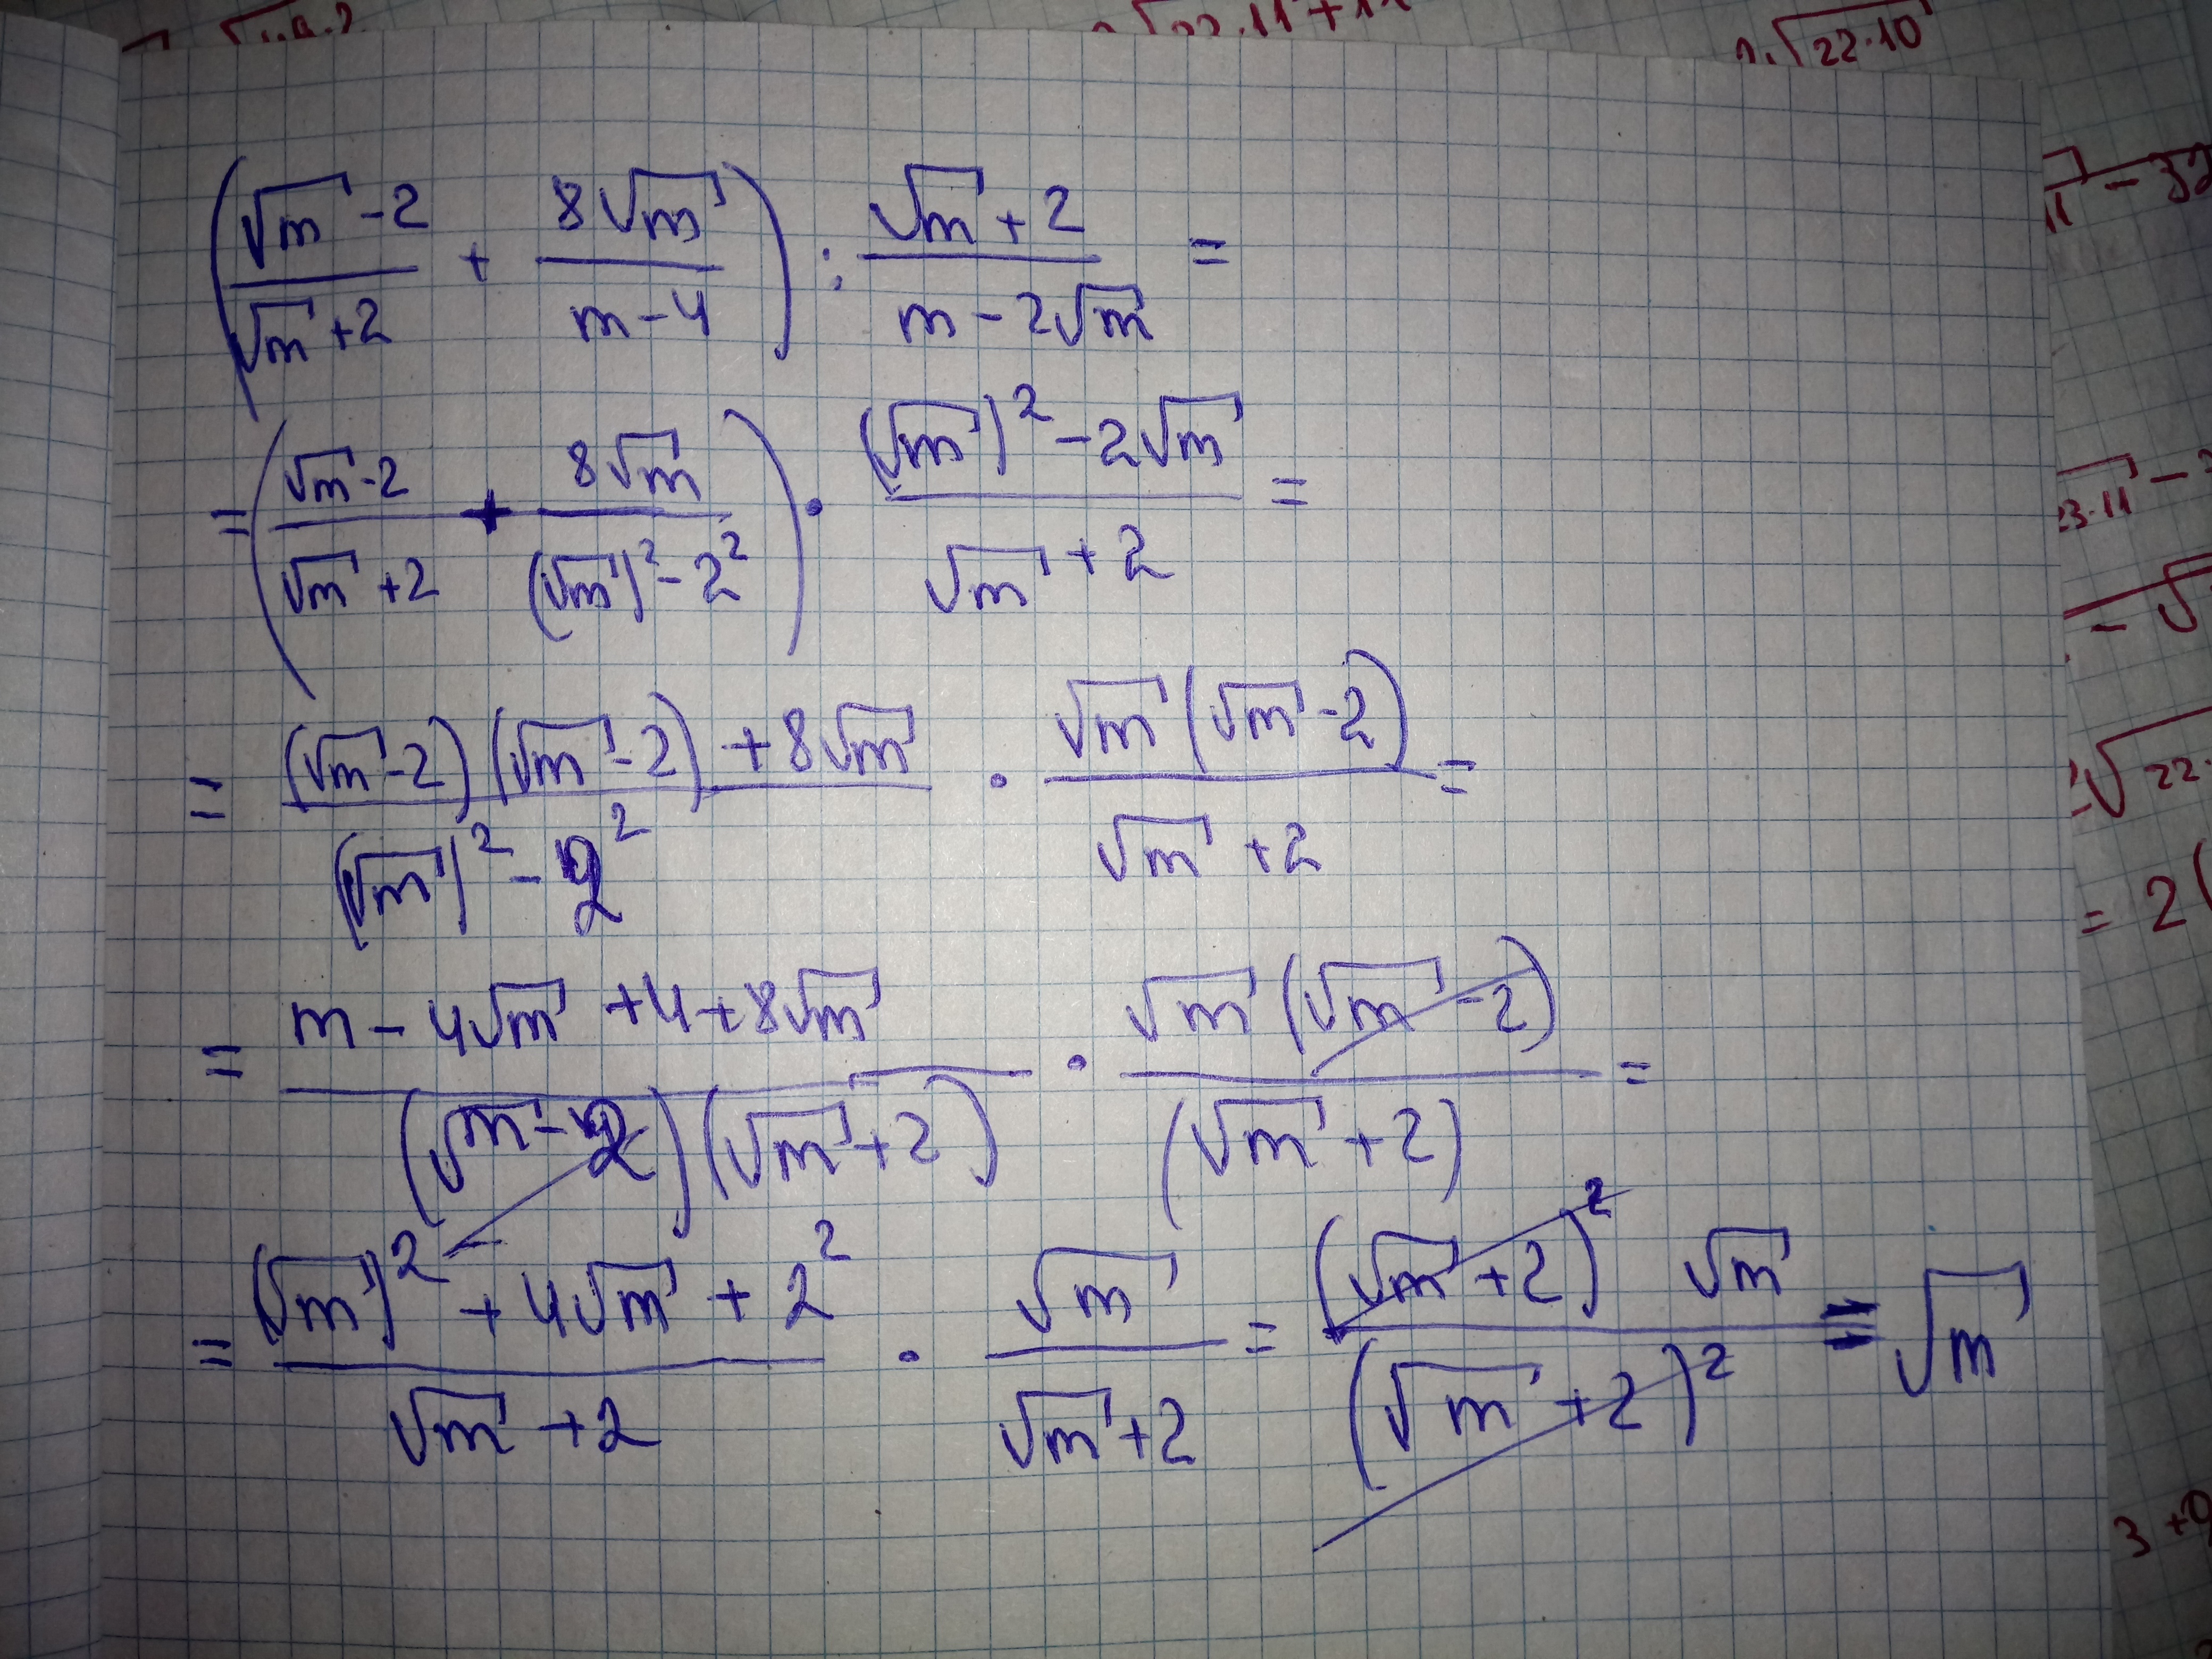 √22·11+11
2·√22·10
(√m-2/√m+2 + 8√m/m-4) : √m+2/m-2√m =
=(√m-2/√m+2 + 8√m/(√m)²-2²) · (√m)²-2√m/√m+2 =
= (√m-2)(√m-2)+8√m/(√m)²-2² · √m(√m-2)/√m+2 =
= m-4√m+4+8√m/(√m-2)(√m+2) · √m(√m-2)/(√m+2) =
= (√m)²+4√m+2²/√m+2 · √m/√m+2 = (√m+2)² √m/(√m+2)² = √m
11 - 32
23·11 -
- √
√22·
= 2(
3 +